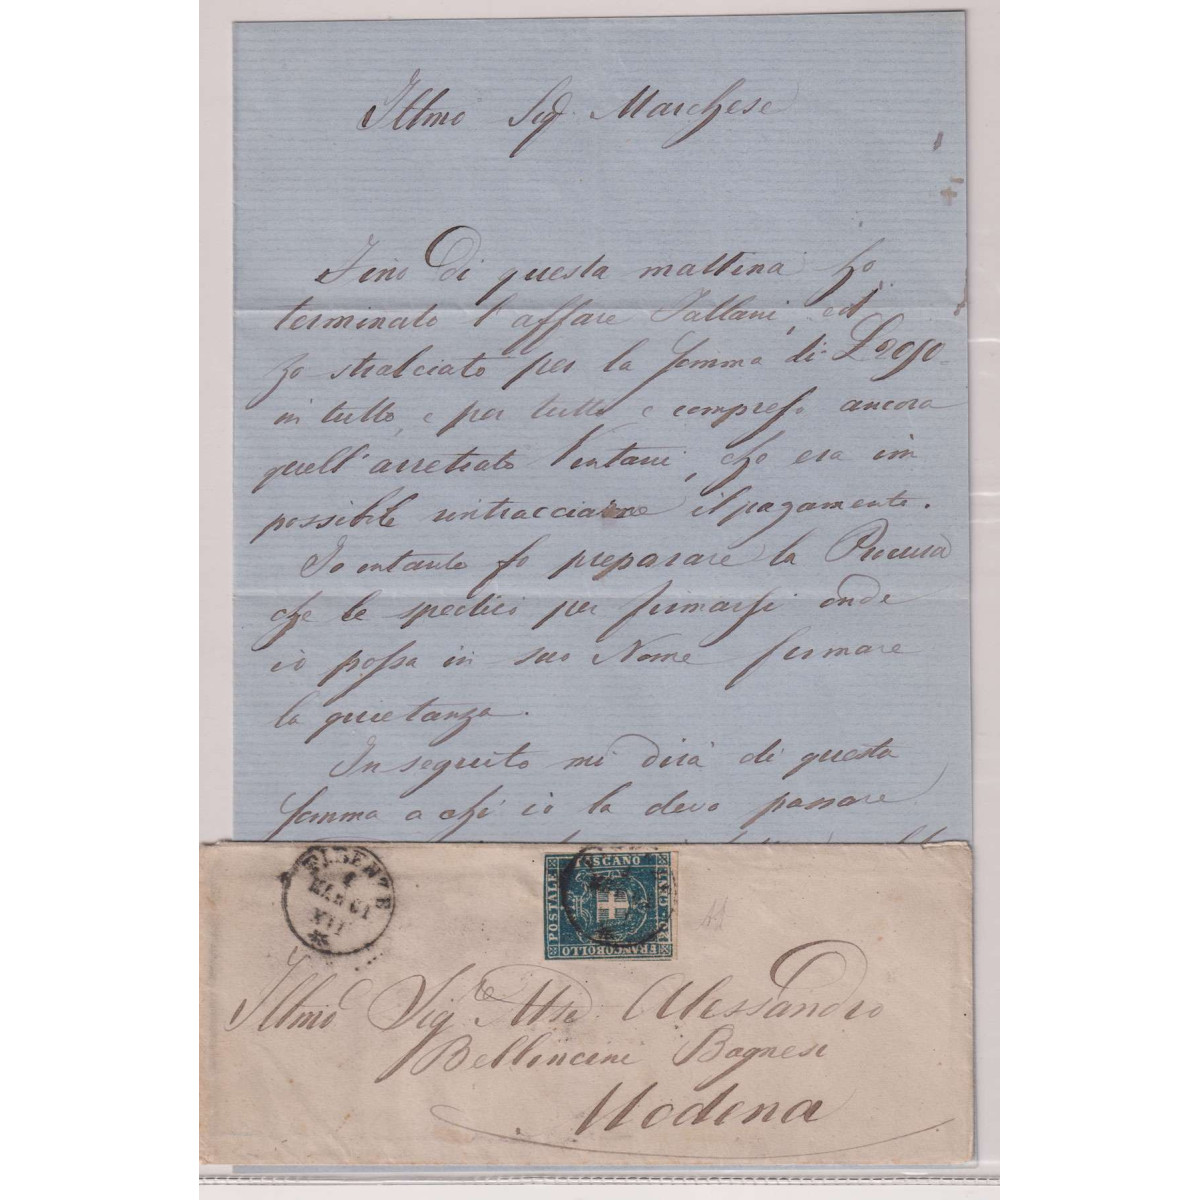 Illmo Sig. Marchese
Fino di questa mattina ho
terminato l'affare Fallani, ed
ho stralciato per la somma di
in tutto, e per tutto e compreso ancora
quell'arretrato che era im
possibile rintracciarne il pagamento.
Io intanto fo preparare la Procura
che le spedirò per firmarsi onde
io possa in suo Nome firmare
la quietanza.
In seguito mi dirà di questa
somma a chi io la devo passare
FIRENZE
1
61
XII
TOSCANO
POSTALE
FRANCOBOLLO
20 CENT
Illmo Sigre Mse Alessandro
Bellincini Bagnesi
Modena